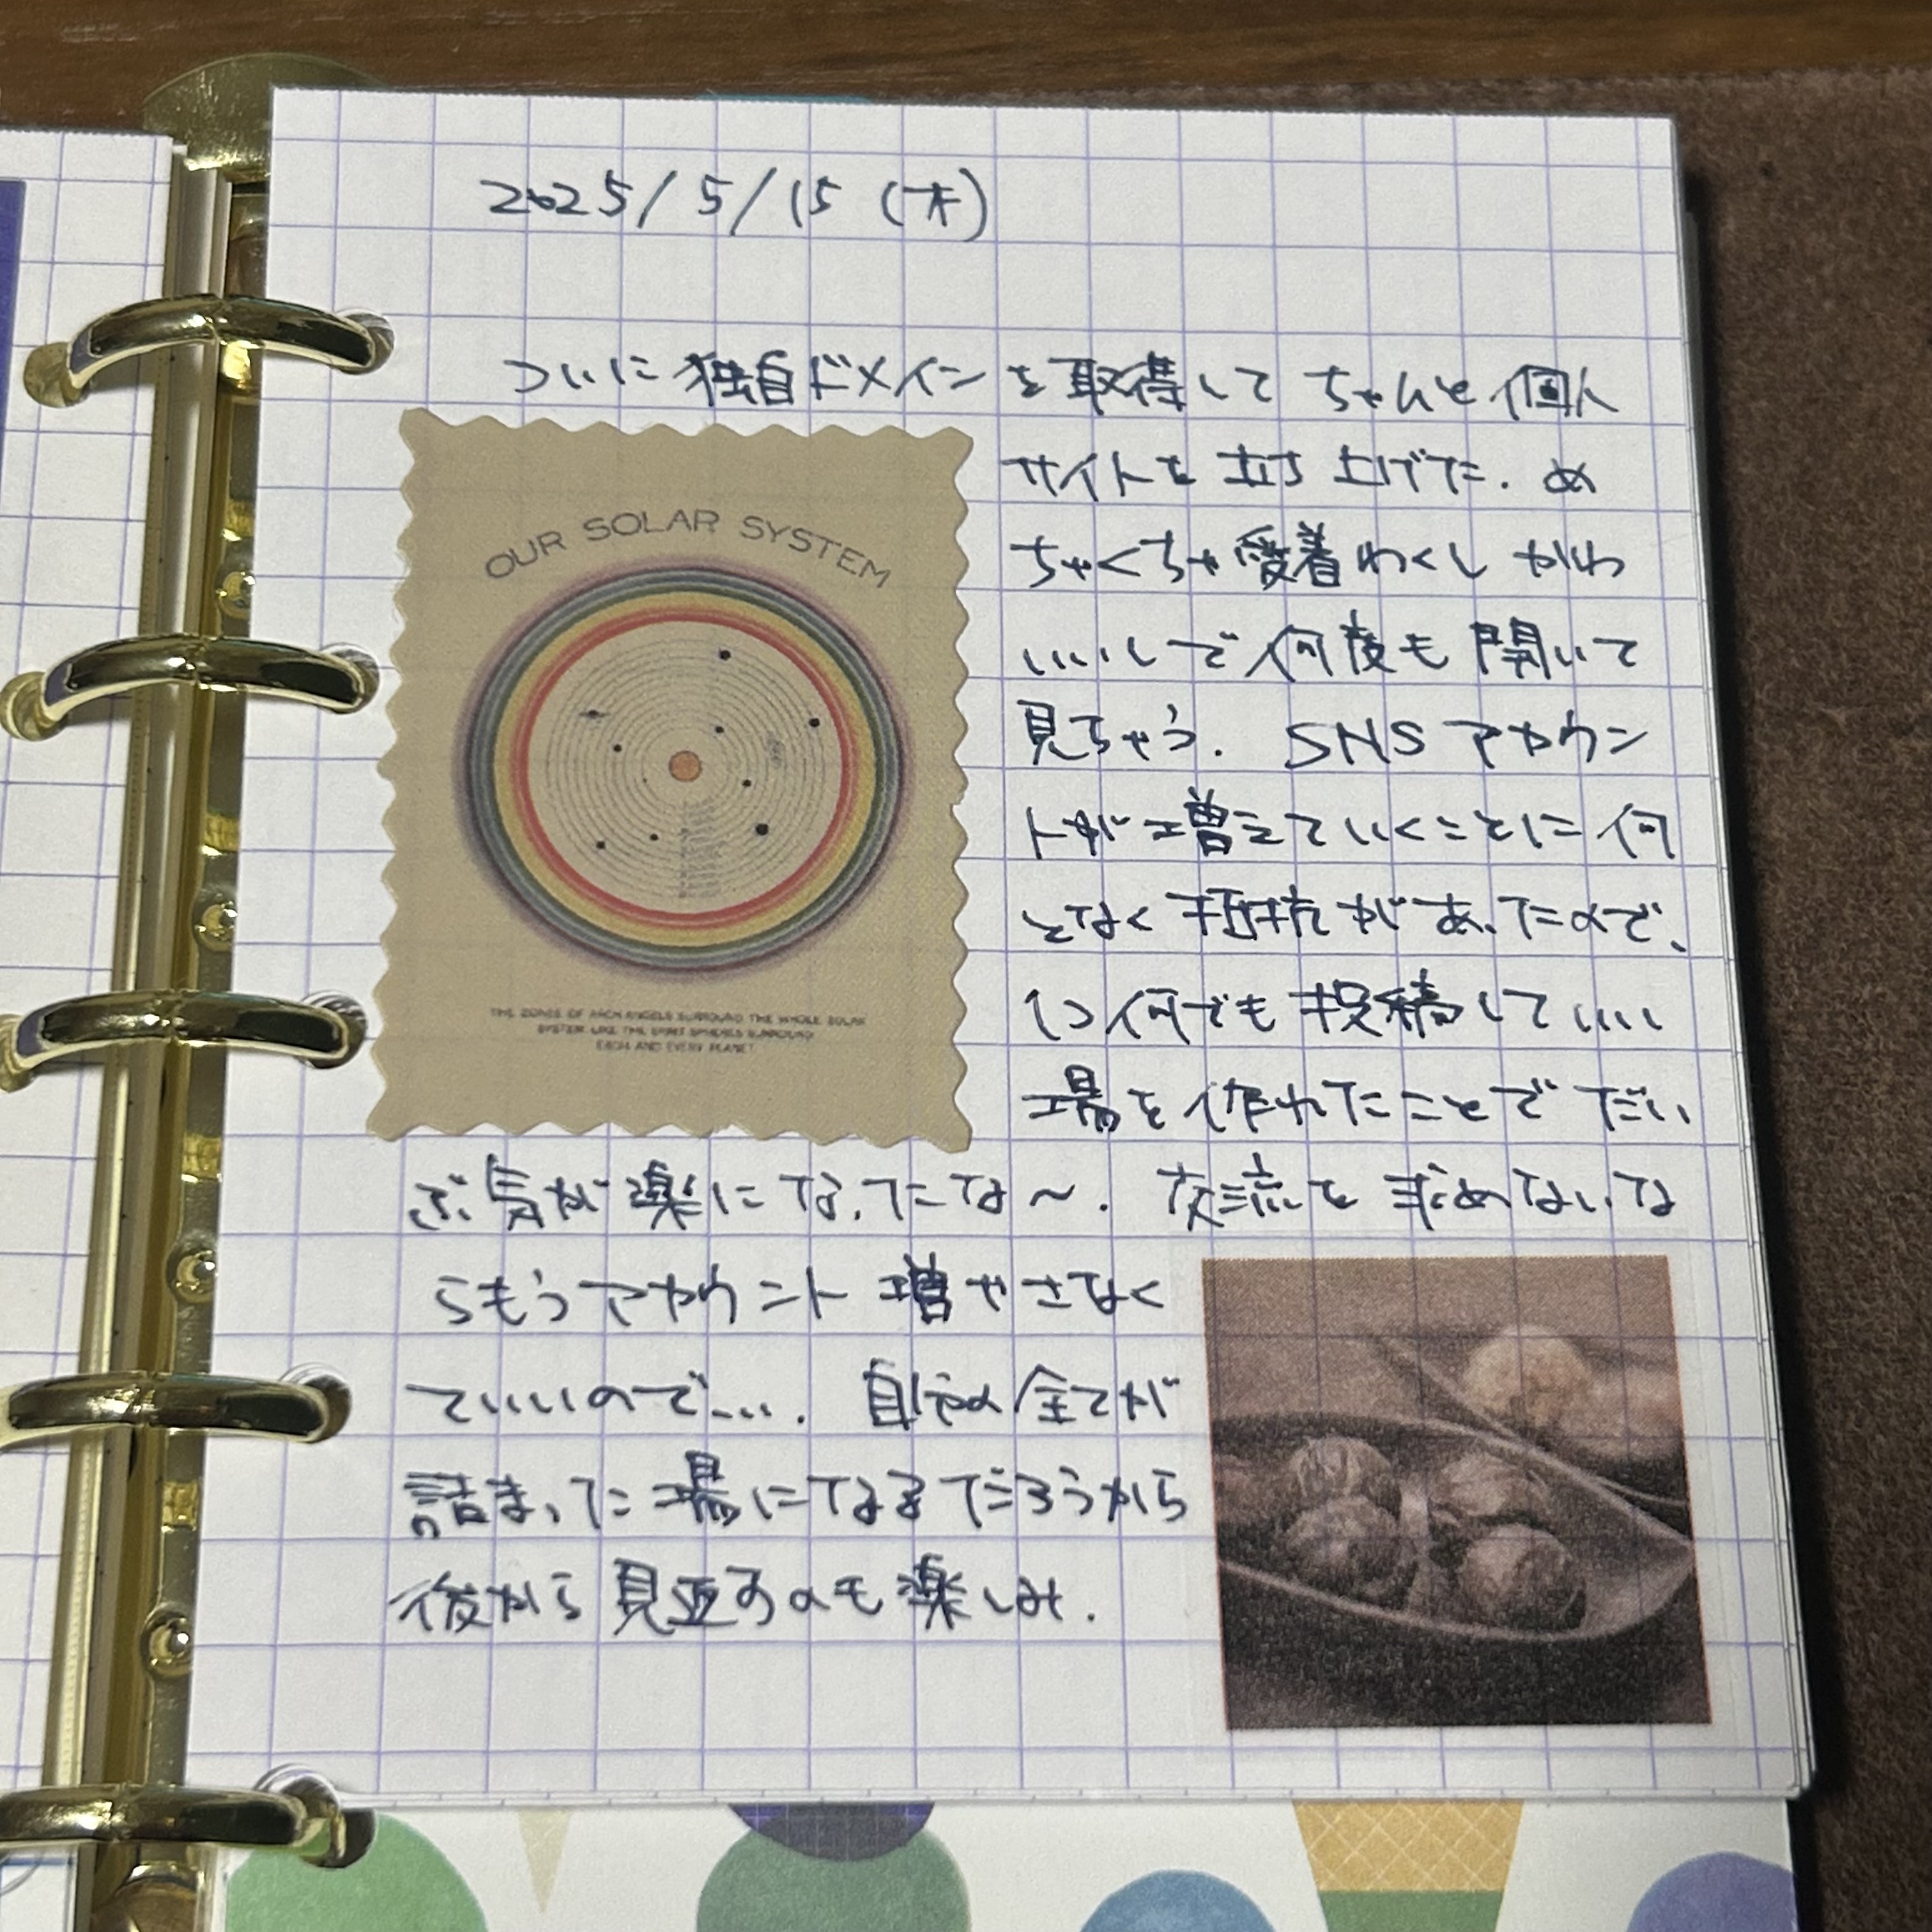 2025/5/15 (木)
ついに独自ドメインを取得してちゃんと個人
サイトを立ち上げた. め
ちゃくちゃ愛着わくし かわ
いいしで何度も開いて
見ちゃう. SNSアカウン
トが増えていくことに何
となく抵抗があったので、
1つ何でも投稿していい
場を作れたことでだい
ぶ気が楽になったな〜. 交流を求めないな
らもうアカウント増やさなく
ていいので…. 自分の全てが
詰まった場になるだろうから
後から見返すのも楽しみ.
OUR SOLAR SYSTEM
THE ZONES OF ARCHANGELS SURROUND THE WHOLE SOLAR
SYSTEM LIKE THE SPIRIT SPHERES SURROUND
EACH AND EVERY PLANET